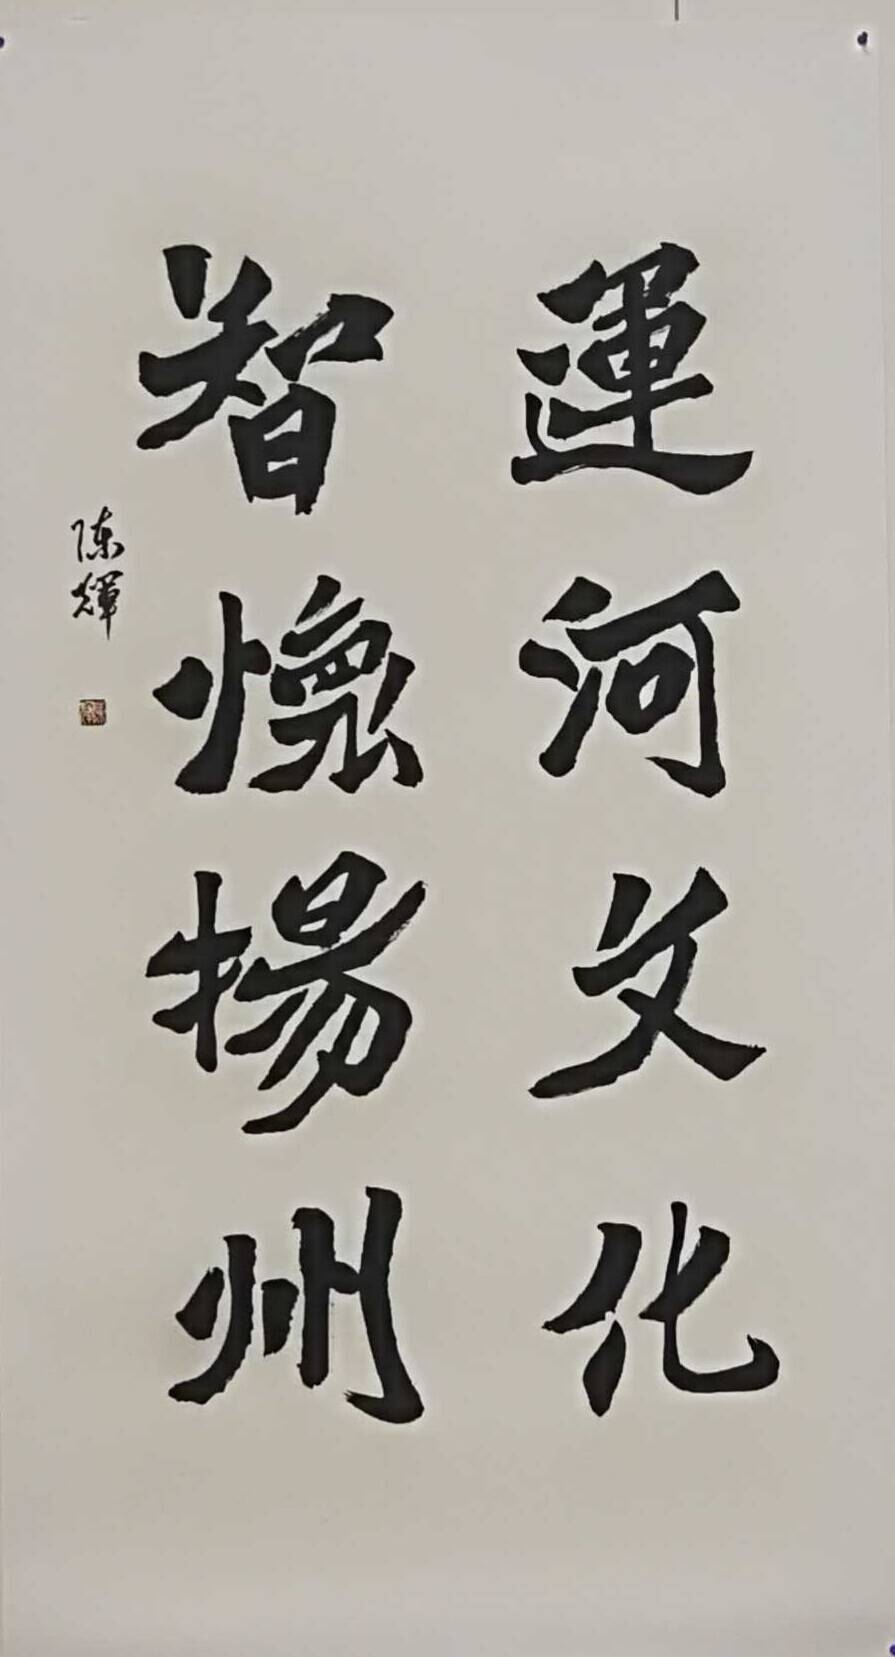 運河文化
智懷揚州
陳輝